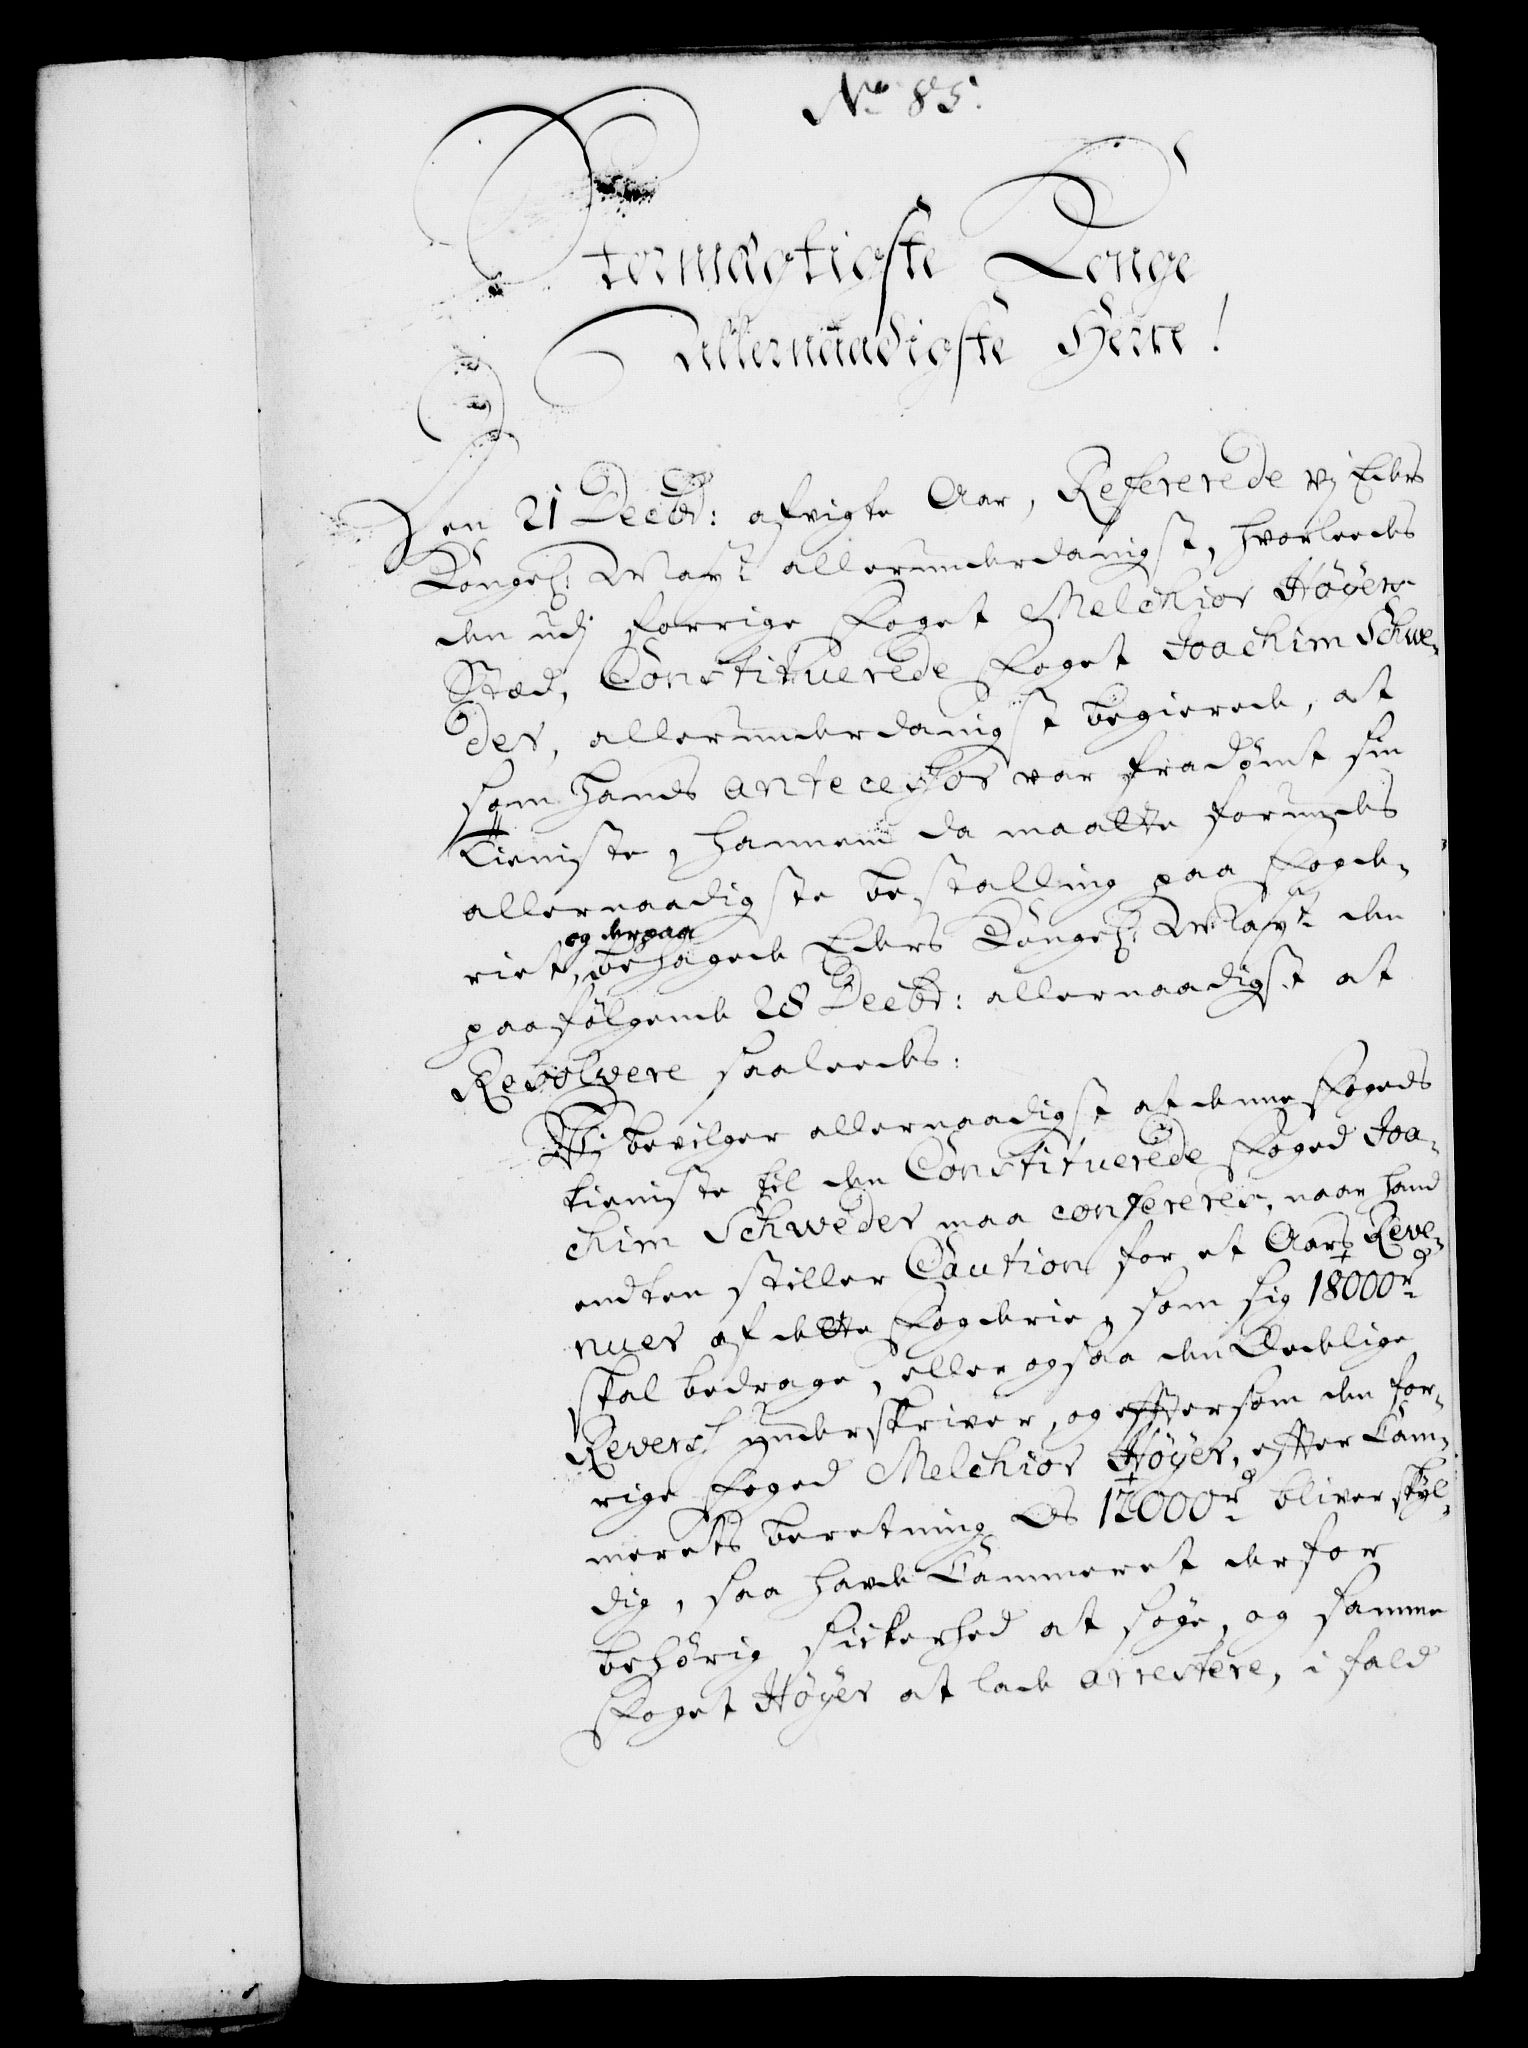 No 85.
Stormægtigste Konge
Allernaadigste Herre!
Den 21 Decbr: afvigte Aar, Refererede vj Eders
Kongel: May:t allerunderdanigst, hvorleedes
den udj forrige Foget Melchior Høyers
Stæd, Constituerede Foget Joachim Schwe-
der, allerunderdanigst begierede, at
som hands antecessor var fradømt sin
Tieniste, hannem da maatte forundes
allernaadigste bestalling paa Fogde-
riet, og derpaa behagede Eders Kongel: May:t den
paafølgende 28 Decbr: allernaadigst at
Resolvere saaleedes:
Vj bevilger allernaadigst at denne Fogeds
tieniste til den Constituerede Foged Joa-
chim Schweder maa confereres, naar hand
endten stiller Caution for et Aars Reve-
nuer af dette Fogderie, som sig 18000 rd
skal bedrage, eller ogsaa den Sædvlige
Revers underskriver, og efftersom den for-
rige Foged Melchior Høyer, effter Cam-
merets beretning Os 12000 rd bliver skyl-
dig, saa hafde Cammeret derfor
behørig sickerhed at søge, og samme
Foget Høyer at lade arrestere, i fald